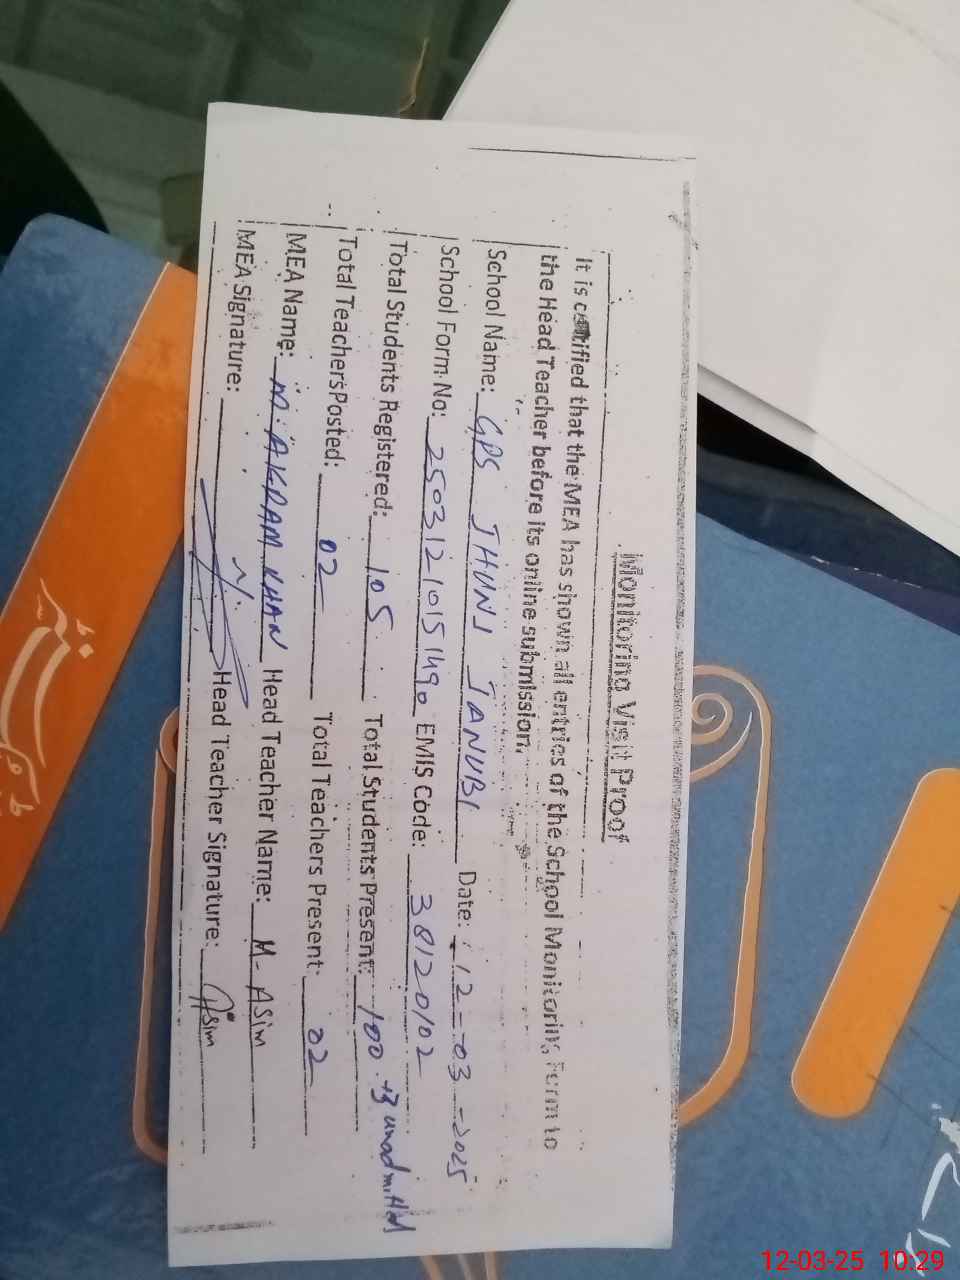 Monitoring Visit Proof
It is certified that the MEA has shown all entries of the School Monitoring Form to
the Head Teacher before its online submission.
School Name: GPS JHUNJ JANUBI Date: 12-03-2025
School Form No: 25031210151490 EMIS Code: 38120102
Total Students Registered: 105 Total Students Present: 100 +3 unadmitted
Total Teachers Posted: 02 Total Teachers Present: 02
MEA Name: M. AKRAM KHAN Head Teacher Name: M- Asim
MEA Signature: Head Teacher Signature: Asim
12-03-25 10:29